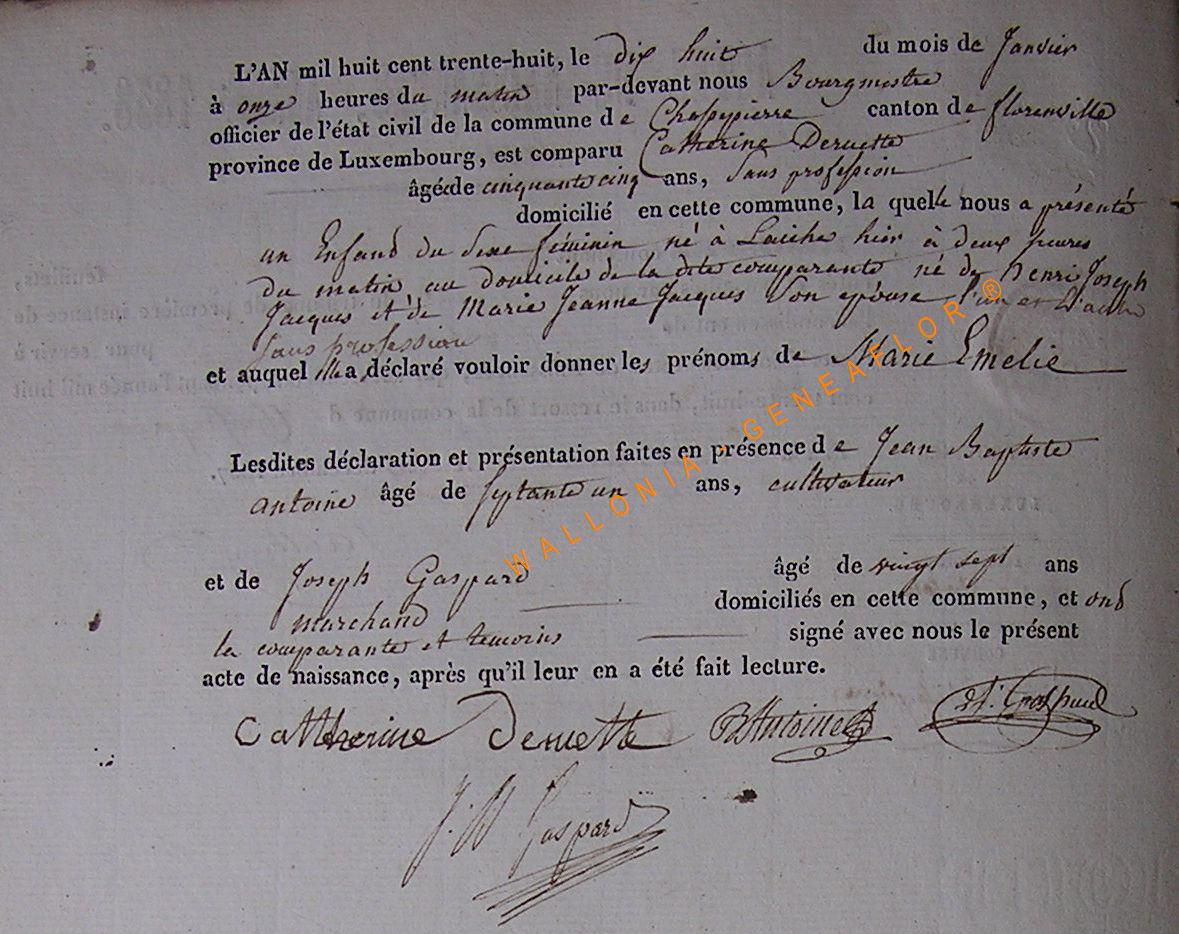 L'AN mil huit cent trente-huit, le dix huit du mois de Janvier
à onze heures du matin par-devant nous Bourgmestre
officier de l'état civil de la commune de Chassepierre canton de florenville
province de Luxembourg, est comparu Catherine Deruette
âgée de cinquante cinq ans, Sans profession
domicilié en cette commune, la quelle nous a présenté
un Enfand du sexe féminin né à Laiche hier à deux heures
du matin, au domicile de la dite comparante né de henri Joseph
Jacques et de Marie Jeanne Jacques Son epouse
Sans profession
et auquel elle a déclaré vouloir donner les prénoms de Marie Emelie
Lesdites déclaration et présentation faites en présence de Jean Baptiste
antoine âgé de septante un ans, cultivateur
et de Joseph Gaspard âgé de vingt sept ans
marchand domiciliés en cette commune, et ond
la comparante et temoins signé avec nous le présent
acte de naissance, après qu'il leur en a été fait lecture.
Catherine Deruette JBAntoine
J. Gaspard
WALLONIA - GENEAFLOR ®